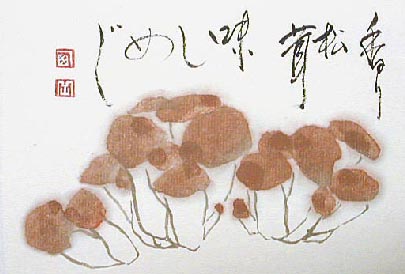 香り
松
茸
味
しめじ